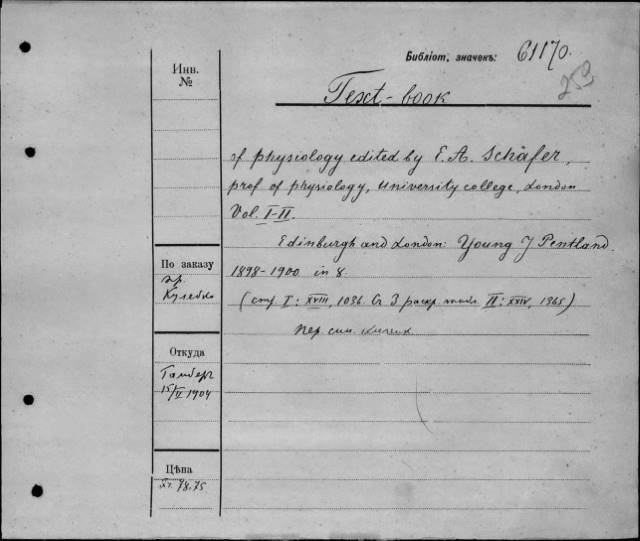 Библіот. значекъ: 61170.
253
Инв.
№
Text-book
of physiology edited by E. A. Schäfer,
prof of physiology, University college, London
Vol. I-II.
Edinburgh and London: Young J Pentland.
1898-1900 in 8.
(стр I: XVIII, 1036. Съ 3 раскр. табл. II: XXIV, 1365)
пер. син.
По заказу
пр.
Кулябко
Откуда
15/II 1904
Цѣна
78.75